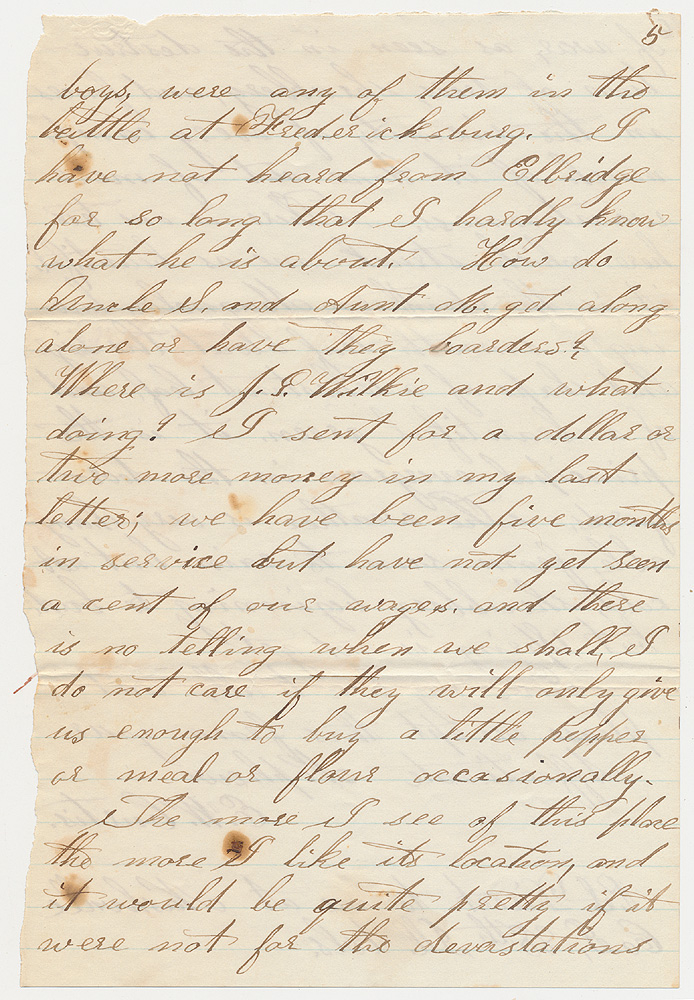 5
boys, were any of them in the
battle at Fredericksburg. I
have not heard from Elbridge
for so long that I hardly know
what he is about. How do
Uncle S. and Aunt M. get along
alone or have they boarders?
Where is J. P. Wilkie and what
doing? I sent for a dollar or
two more money in my last
letter; we have been five months
in service but have not yet seen
a cent of our wages. and there
is no telling when we shall, I
do not care if they will only give
us enough to buy a little pepper
or meal or flour occasionally.
The more I see of this place
the more I like its location, and
it would be quite pretty if it
were not for the devastations